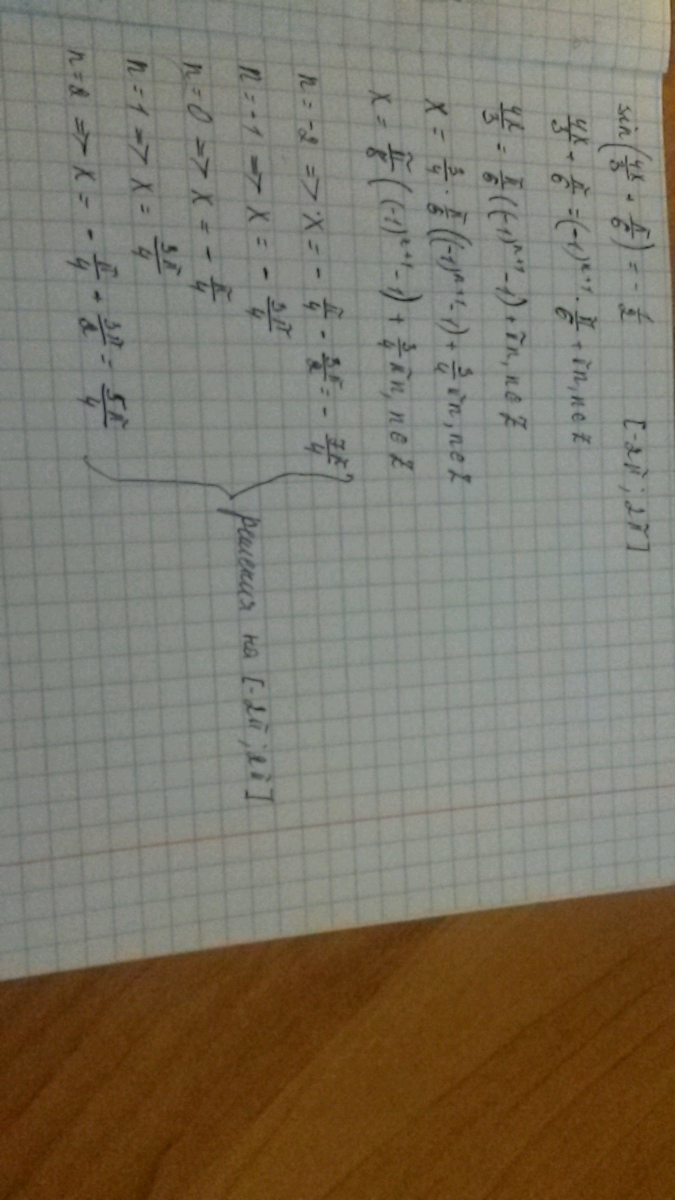 sin(4x/3 + π/6) = -1/2 [-2π; 2π]
4x/3 + π/6 = (-1)ⁿ⁺¹ · π/6 + πn, n ∈ Z
4x/3 = π/6 ((-1)ⁿ⁺¹ - 1) + πn, n ∈ Z
x = 3/4 · π/6 ((-1)ⁿ⁺¹ - 1) + 3/4 πn, n ∈ Z
x = π/8 ((-1)ⁿ⁺¹ - 1) + 3/4 πn, n ∈ Z
n = -2 => x = -π/4 - 3π/2 = -7π/4
n = -1 => x = -3π/4
n = 0 => x = -π/4
n = 1 => x = 3π/4
n = 2 => x = -π/4 + 3π/2 = 5π/4
решения на [-2π; 2π]